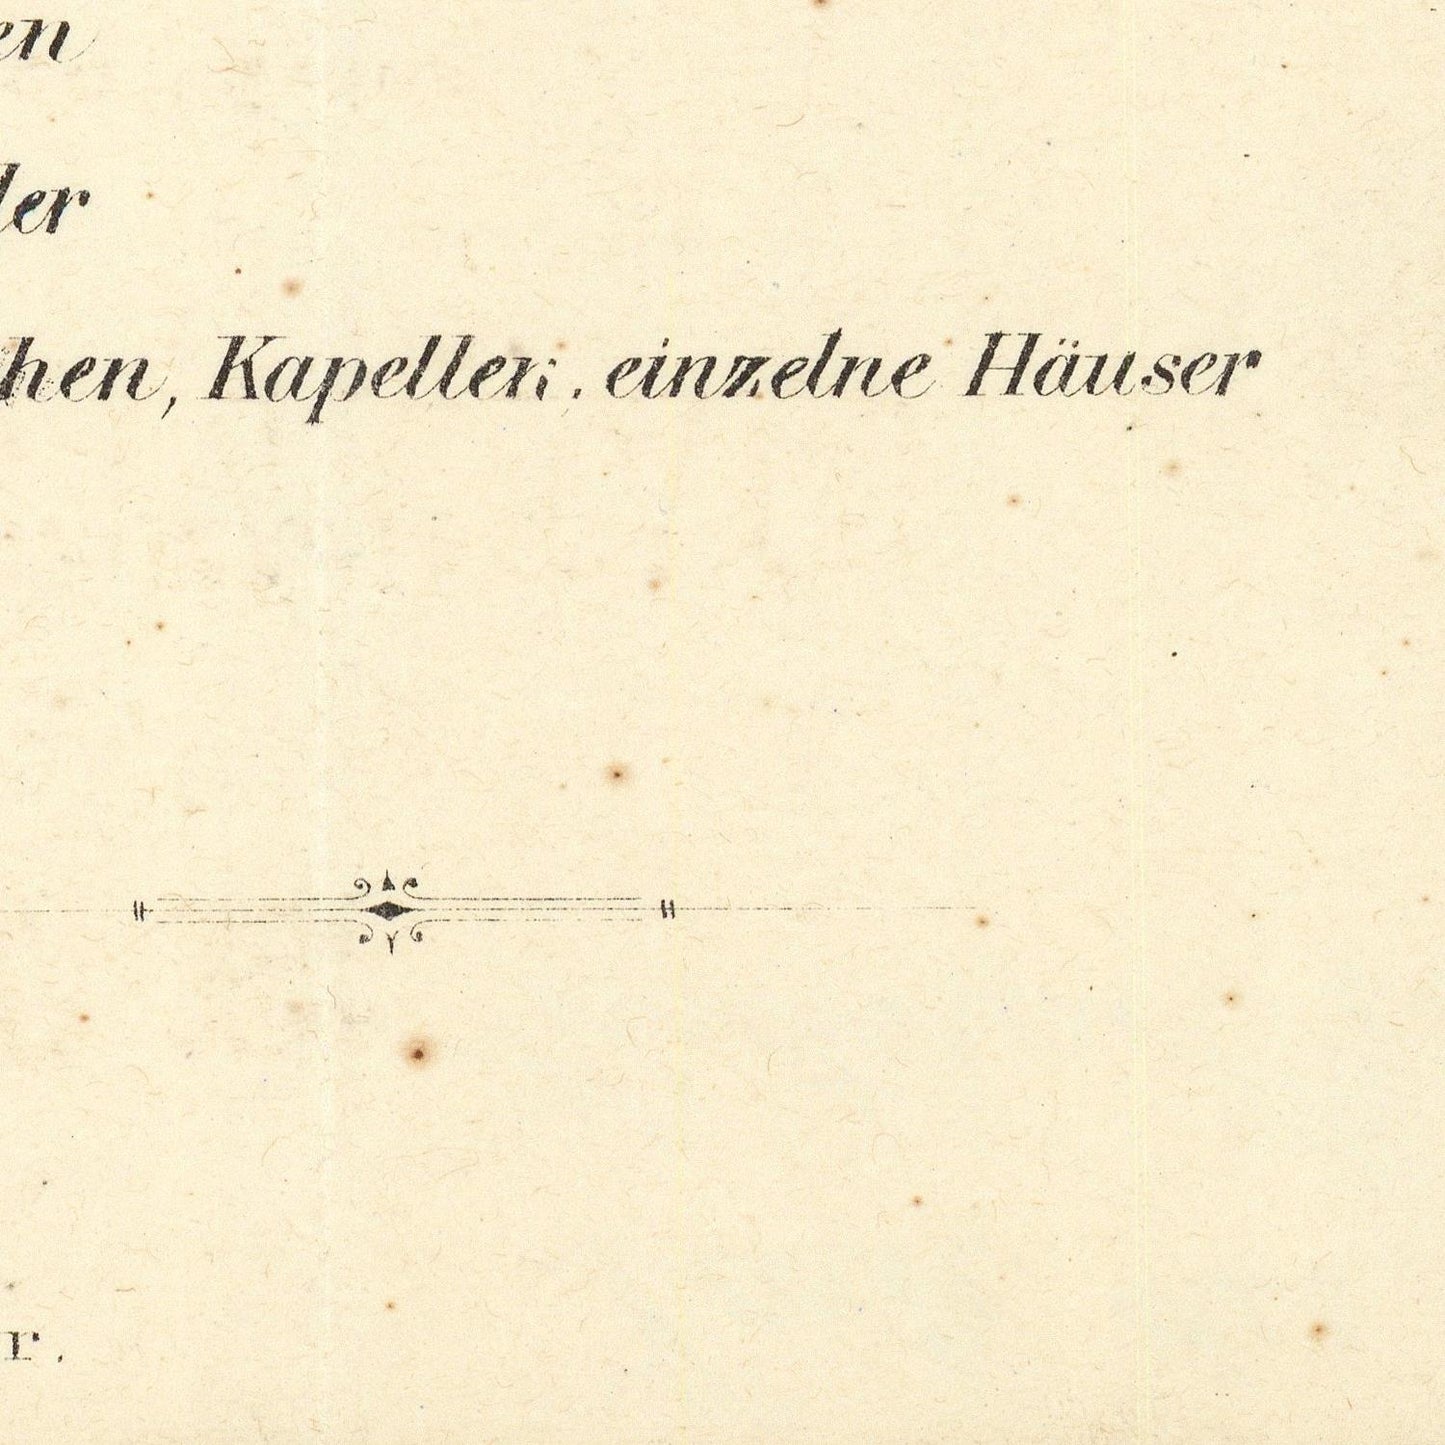 en
ler
hen, Kapellen, einzelne Häuser
r.